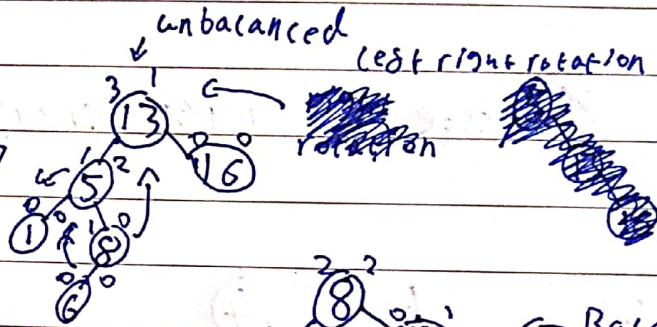 unbalanced
left right rotation
3 1
13
rotation
0 0
16
1 2
5
0 0
1
1 0
8
0 0
6
2 2
8
0 1
Bal